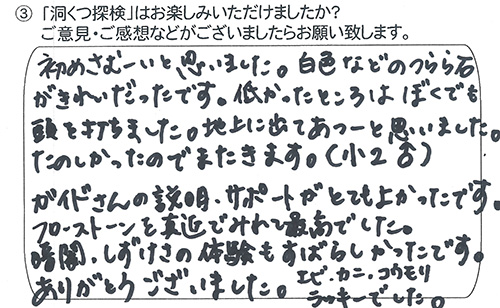 ③「洞くつ探検」はお楽しみいただけましたか?
ご意見・ご感想などがございましたらお願い致します。
初めさむーいと思いました。白色などのつらら石
がきれいだったです。低かったところはぼくでも
頭を打ちました。地上に出てあつーと思いました。
たのしかったのでまたきます。(小2 )
ガイドさんの説明・サポートがとてもよかったです。
フローストーンを真近でみれて最高でした。
暗闇、しずけさの体験もすばらしかったです。
ありがとうございました。エビ・カニ・コウモリ
ラッキーでした。